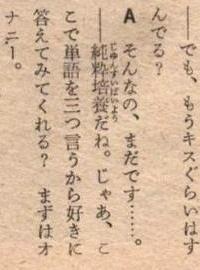 ――でも、もうキスぐらいはす
んでる？
A　そんなの、まだです……。
――純粋培養だね。じゃあ、こ
じゅんすいばいよう
こで単語を三つ言うから好きに
答えてみてくれる？　まずはオ
ナニー。